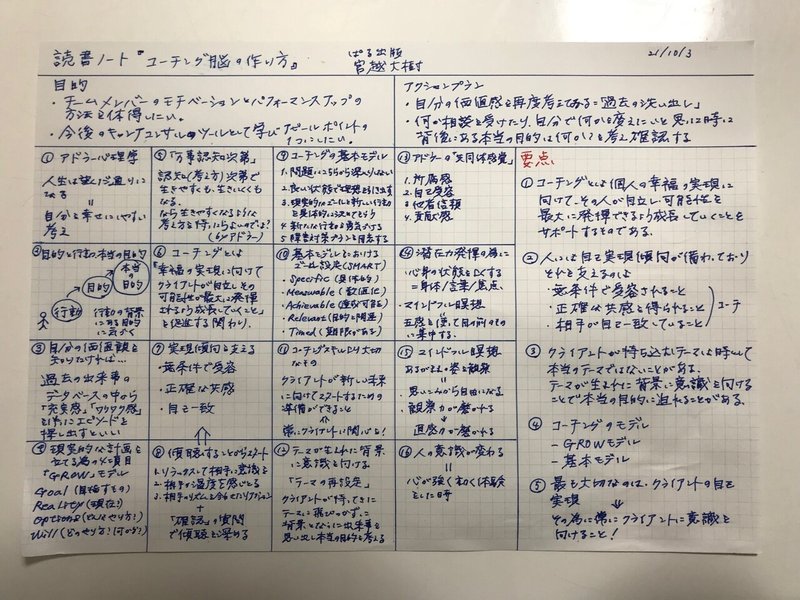 読書ノート『コーチング脳の作り方』
ぱる出版
宮越大樹
21/10/3
目的
・チームメンバーのモチベーションとパフォーマンスアップの
方法を体得したい。
・今後のキャリアコンサルのツールとして学びアピールポイントの
1つにしたい。
アクションプラン
・自分の価値感を再度考えてみる=「過去の洗い出し」
・何か相談を受けたり、自分で何かを考えたいと思った時は
背後にある本当の目的は何か?を考え確認する
① アドラー心理学
人生は望んだ通りに
なる
=
自分を幸せにやすい
考え
② 目的と行動、本当の目的
本当の
目的
目的
行動
行動の背景
にある目的
に気がつく
③ 自分の価値観を
知りたければ…
過去の出来事の
データベースの中から
「充実感」「ワクワク感」
を伴ったエピソードを
探し出すといい
④ 現実的な計画を
立てる為の4項目
「GROW」モデル
Goal (目指すもの)
Reality (現在?)
Options (どんなやり方?)
Will (どのやり方?何から?)
⑤ 「万事認知次第」
認知(考え方)次第で
生きやすくも、生きにくくも
なる。
なら生きやすくなるような
考え方を持ったらよいのでは?
(byアドラー)
⑥ コーチングとは
「幸福の実現に向けて
クライアントが自立し、その
可能性が最大に発揮
出来るよう成長していくこと」
を促進する関わり。
⑦ 実現傾向を支える
・無条件で受容
・正確な共感
・自己一致
⑧ 傾聴することからスタート
1. リラックスして相手に意識を
2. 相手の温度を感じとる
3. 相手のリズムと合わせたリアクション
+
「確認」の質問
で傾聴を深める
⑨ コーチングの基本モデル
1. 問題にこちらから深入りしない
2. 良い状態で理想を引き出す
3. 現実的なゴールと新しい行動
を具体的に決めてもらう
4. 新たな行動を勇気づけ
5. 障害対策プランを用意する
⑩ 基本モデルにおける
ゴール設定(SMART)
・Specific (具体的)
・Measurable (数値化)
・Achievable (達成可能な)
・Relevant (目的と関連)
・Timed (期限がある)
⑪ コーチングスキルより大切
なもの
クライアントが新しい未来
に向けてスタートするための
準備ができること
⇧
常にクライアントに関心を!
⑫ テーマが生まれた背景
に意識を向ける
「テーマの再設定」
クライアントが持ってきた
テーマに飛びつかずに
背景となった出来事を
思い出し本当の目的を考える
⑬ アドラーの「共同体感覚」
1. 所属感
2. 自己受容
3. 他者信頼
4. 貢献感
⑭ 潜在力発揮の為に
心身の状態を良くする
=身体/言葉/焦点
・マインドフル瞑想
五感を使って目の前のもの
に集中する。
⑮ マインドフル瞑想
あるがままの姿を観察
=
・思いこみから自由になる
・観察力が磨かれる
↓
直感力が磨かれる
⑯ 人の意識が変わる
=
心が強くわく体験
をした時
要点
① コーチングとは個人の幸福の実現に
向けて、その人が自立し可能性を
最大に発揮できるよう成長していくことを
サポートするものである。
② 人には自己実現傾向が備わっており
それを支えるのは
・無条件で受容されること
・正確な共感を得られること
・相手が自己一致していること
コーチ
③ クライアントが持ち込むテーマは時として
本当のテーマではないことがある。
テーマが生まれた背景に意識を向ける
ことで本当の目的に迫れることがある。
④ コーチングのモデル
- GROWモデル
- 基本モデル
⑤ 最も大切なのは、クライアントの自己
実現
⇩
その為に常にクライアントに意識を
向けること!